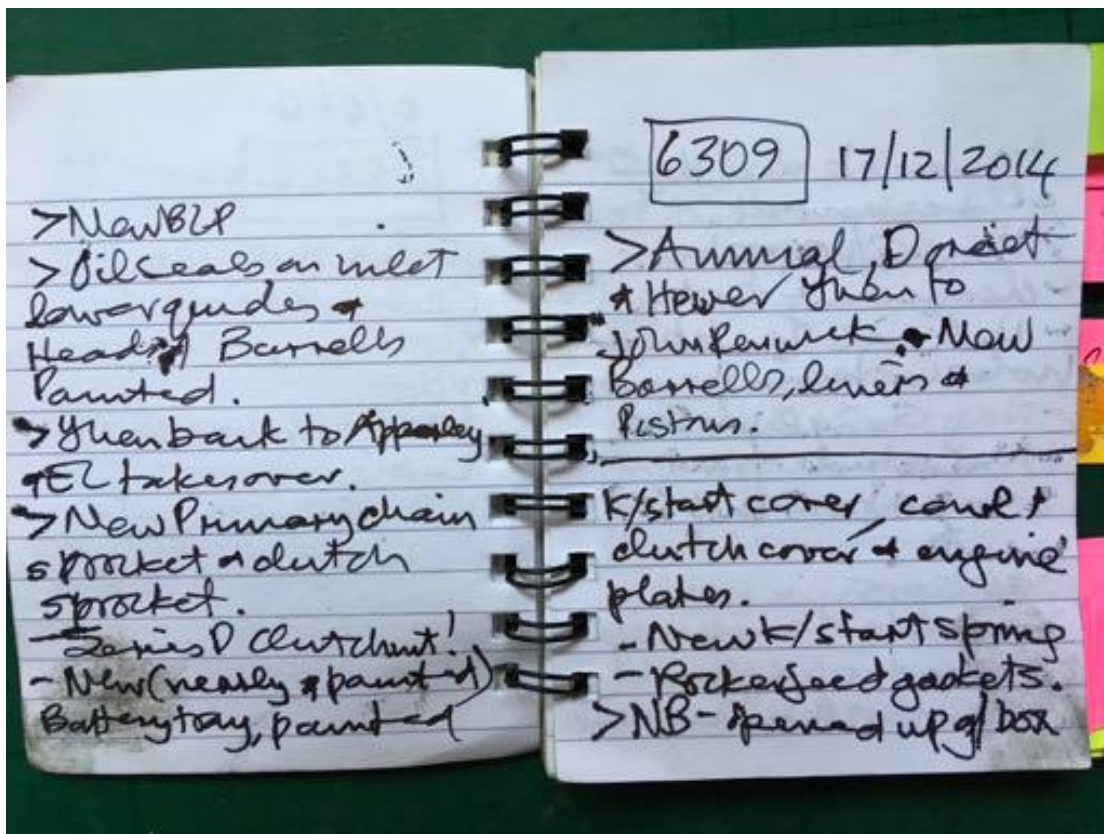 > New BLP
> Oil seals on inlet
lower guides &
Heads & Barrells
Painted.
> Then back to Apperley
& EL takes over.
> New Primary chain
sprocket & clutch
sprocket.
- Series D clutch nut!
- New (nearly & painted)
Battery tray, painted
6309 17/12/2014
> Annual, Dorset
& Hewer then to
John Renwick. New
Barrells, liners &
Pistons.
K/start cover, cowl,
clutch cover & engine
plates.
- New k/start spring
- Rocker feed gaskets.
> NB - opened up g/box